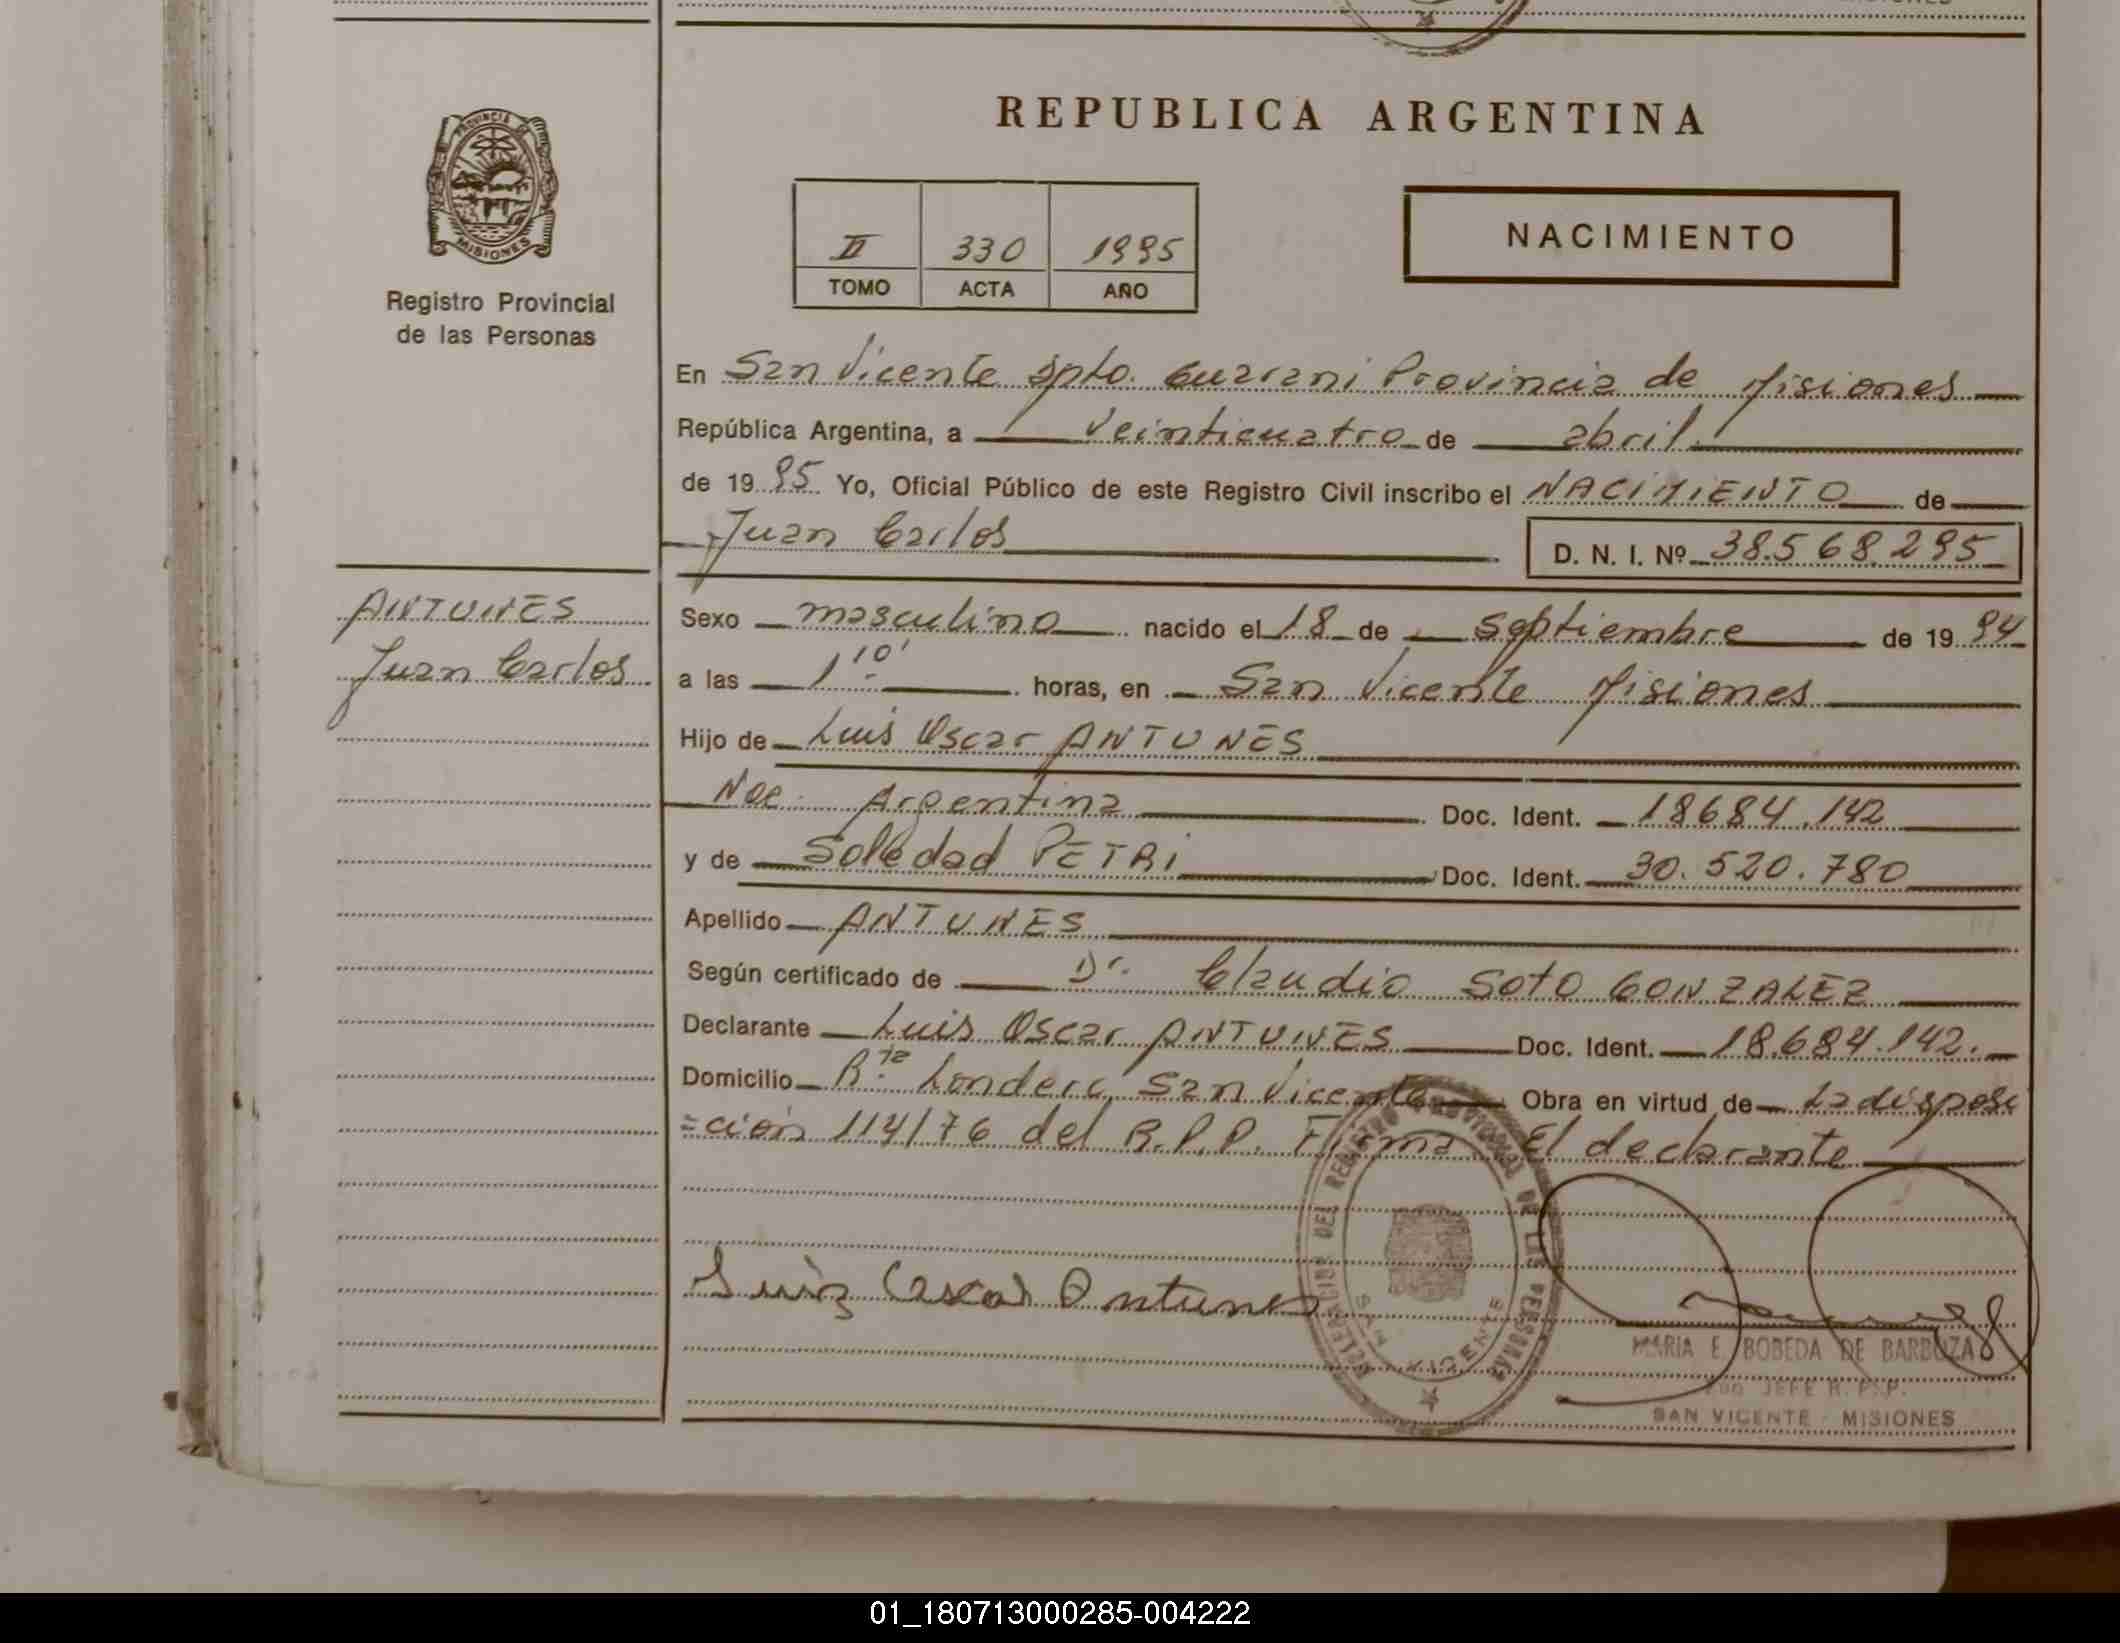 REPUBLICA ARGENTINA
PROVINCIA DE
MISIONES
Registro Provincial
de las Personas
II 330 1995
TOMO ACTA AÑO
NACIMIENTO
En San Vicente Dpto. Guarani Provincia de Misiones
República Argentina, a Veinticuatro de abril
de 1995 Yo, Oficial Público de este Registro Civil inscribo el NACIMIENTO de
Juan Carlos D. N. I. Nº 38.568.295
ANTUNES
Juan Carlos
Sexo masculino nacido el 18 de septiembre de 1994
a las 1.10' horas, en San Vicente Misiones
Hijo de Luis Oscar ANTUNES
Nac. Argentina Doc. Ident. 18684.142
y de Soledad PETRI Doc. Ident. 30.520.780
Apellido ANTUNES
Según certificado de Dr. Claudio SOTO GONZALEZ
Declarante Luis Oscar ANTUNES Doc. Ident. 18.684.142.
Domicilio San Vicente Obra en virtud de La disposi
=ción 114/76 del R.P.P. Firma El declarante
DELEGACION DEL REGISTRO PROVINCIAL DE LAS PERSONAS
SAN VICENTE
Luis Oscar Antunes
MARIA E. BOBEDA DE BARBOZA
JEFE R.P.P.
SAN VICENTE - MISIONES
01_180713000285-004222